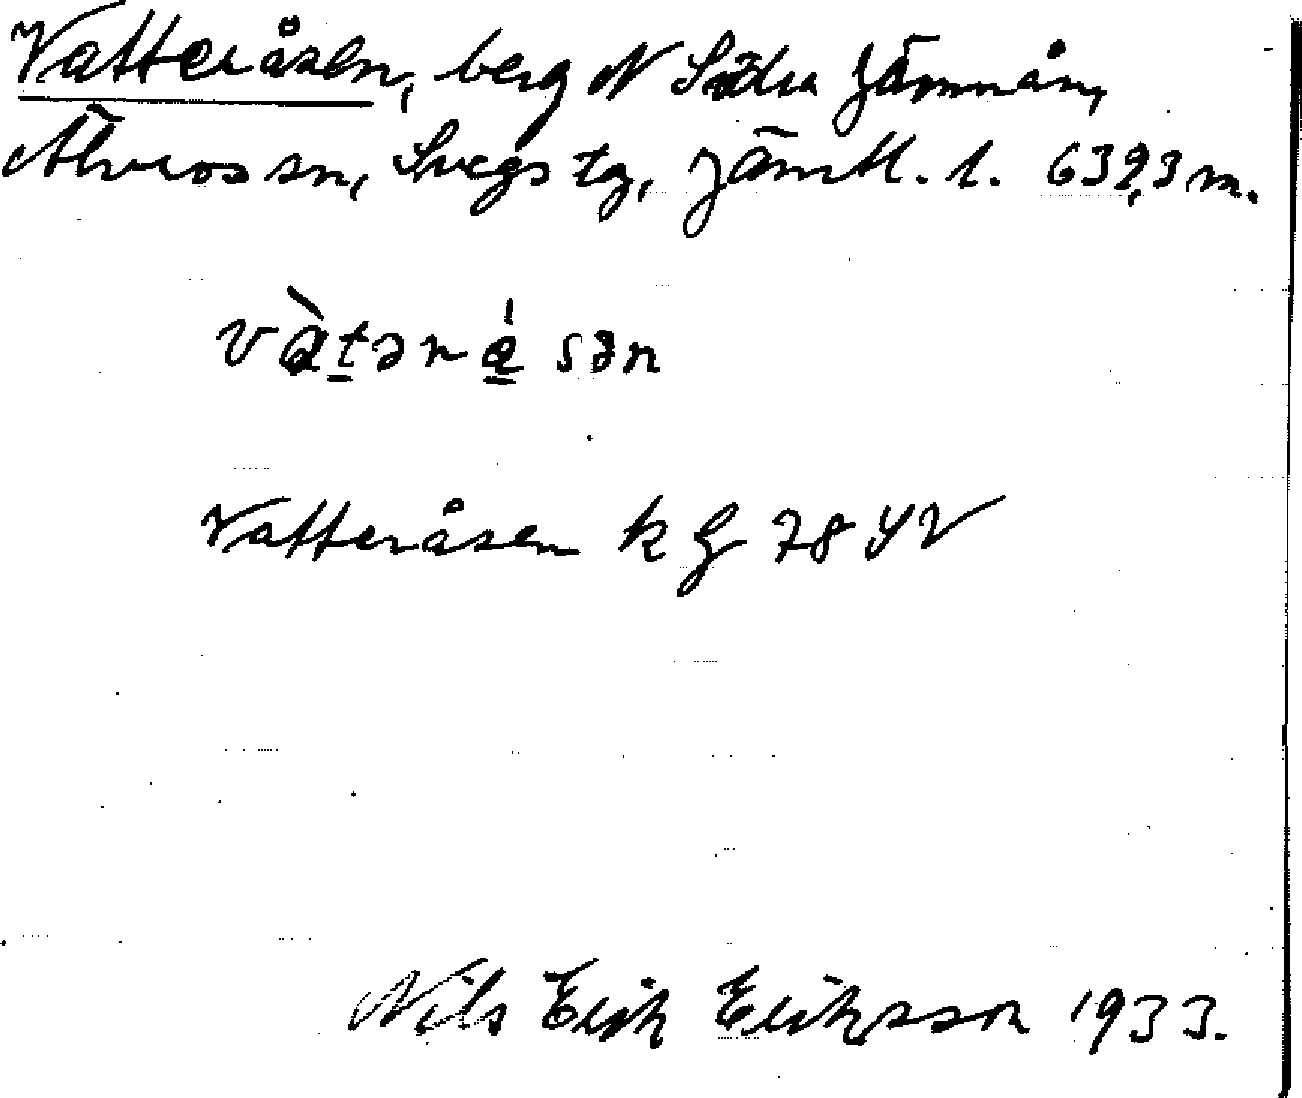 Vatteråsen, berg N Södra Jämnån,
Älvros sn, Svegs tg, Jämtl. l. 639,3 m.
vàtəråsən
Vatteråsen kg 78 SV
Nils Erik Eriksson 1933.